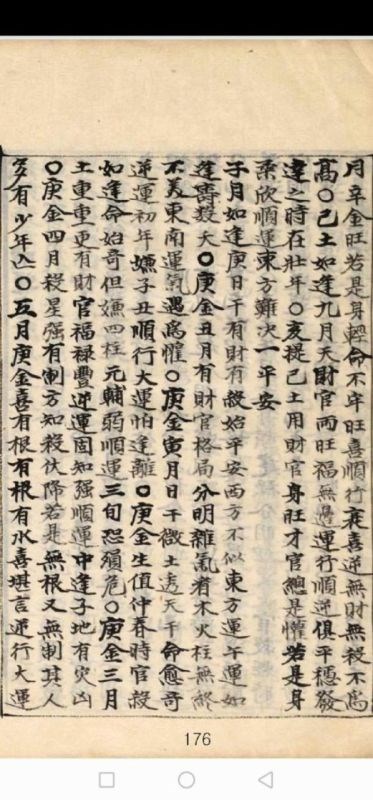 月辛金旺若是身輕命不牢旺喜順行衰喜逆無財無殺不爲
高〇己土如逢九月天財官两旺福無邊運行順逆俱平穩發
達之時在壯年〇亥提己土用財官身旺才官總是懽若是身
柔欣順運東方難决一平安
子月如逢庚日干有財有殺始平安西方不似東方運午運如
逢壽殺夭〇庚金丑月有財官格局分明雜氣者木火柱無終
不美東南運氣遇爲懼〇庚金寅月日干微土透天干命愈奇
逆運初年嫌子丑順行大運怕逢離〇庚金生值仲春時官殺
如逢命始奇但嫌四柱元輔弱順運三旬恐殞危〇庚金三月
土重重更有財官福禄豐逆運固知强順運中逢子地有灾凶
〇庚金四月殺星强有制方知殺伏降若是無根又無制其人
多有少年亾〇五月庚金喜有根有根有水喜堪言逆行大運
176